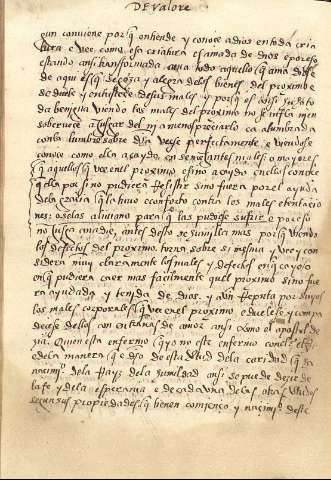 DE valore
gun conviene porq̃ entiende y conoce a dios en toda cria
tura e vee como esa criatura es amada de dios e por eso
estando ansi transformada ama todo aquello q̃ ama dios e
de aqui es q̃ se goza y alegra de los bienes del proximo e
se duele y entristece de sus males y porq̃ es ansi
viendo los males del proximo no se infla ni en
sobervece a juzgar del ni a menospreciarlo ca alumbrada
con la lumbre sobre dicha veese perfectamente e viendose
conoce como ella a caydo en semejantes males o mayores
q̃ aquellos q̃ vee en el proximo e si no a caydo en ellos conoce
q̃ ella por si no pudiera resistir sino fuera por el ayuda
de la gracia q̃ la tuvo e conforto contra los males e tentacio
nes o se las alivianno para q̃ las pudiese sufrir e por eso
no juzga a nadie antes desto se humilla mas porq̃ viendo
los defectos del proximo torna sobre si mesma y vee y con
sidera muy claramente los males y defectos en q̃ cayo o
en q̃ pudiera caer mas facilmente q̃ el proximo sino fue
ra ayudada y tenida de dios. y aun reputa por suyos
los males corporales q̃ vee en el proximo e duelese y compa
decese dellos con entrañas de amor ansi como el apostol de
zia. Quien esta enfermo q̃ yo no este enfermo
e de la manera q̃ e dicho desta virtud de la caridad q̃
nacimiento de la rayz de la humildad ansi se puede dezir de
la fe y de la esperança e de cada una de las otras virtudes
segun sus propiedades q̃ tienen comienço y nacimiento deste